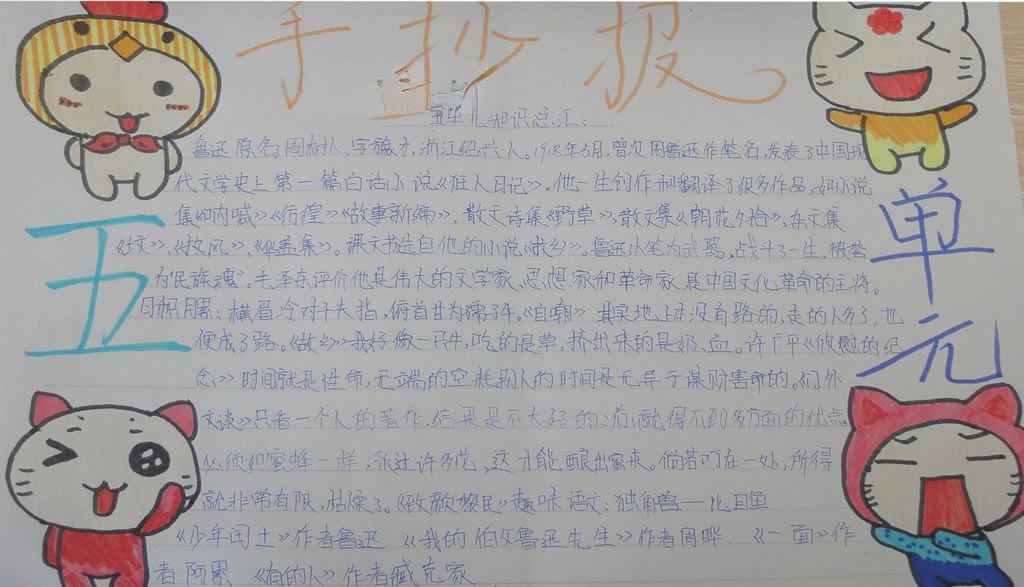 手抄报
五单元知识总汇：
鲁迅原名周树人，字豫才，浙江绍兴人。1918年5月，首次用鲁迅作笔名，发表了中国现
代文学史上第一篇白话小说《狂人日记》。他一生创作和翻译了很多作品，如小说
集《呐喊》《彷徨》《故事新编》、散文诗集《野草》、散文集《朝花夕拾》、杂文集
《坟》、《热风》、《华盖集》。课文书选自他的小说《故乡》。鲁迅以笔为武器，战斗了一生，被誉
为“民族魂”。毛泽东评价他是伟大的文学家、思想家和革命家，是中国文化革命的主将。
日积月累：横眉冷对千夫指，俯首甘为孺子牛。《自嘲》其实地上本没有路的，走的人多了，也
便成了路。《故乡》我好像一只牛，吃的是草，挤出来的是奶、血。许广平《欣慰的纪
念》时间就是性命，无端的空耗别人的时间是无异于谋财害命的。《门外
文谈》只看一个人的著作，结果是不大好的：你就得不到多方面的优点。
必须如蜜蜂一样，采过许多花，这才能酿出蜜来。倘若叮在一处，所得
就非常有限，枯燥了。《致颜黎民》趣味语文：独角兽——比目鱼
《少年闰土》作者鲁迅 《我的伯父鲁迅先生》作者周晔 《一面》作
者阿累 《有的人》作者臧克家
五
单元